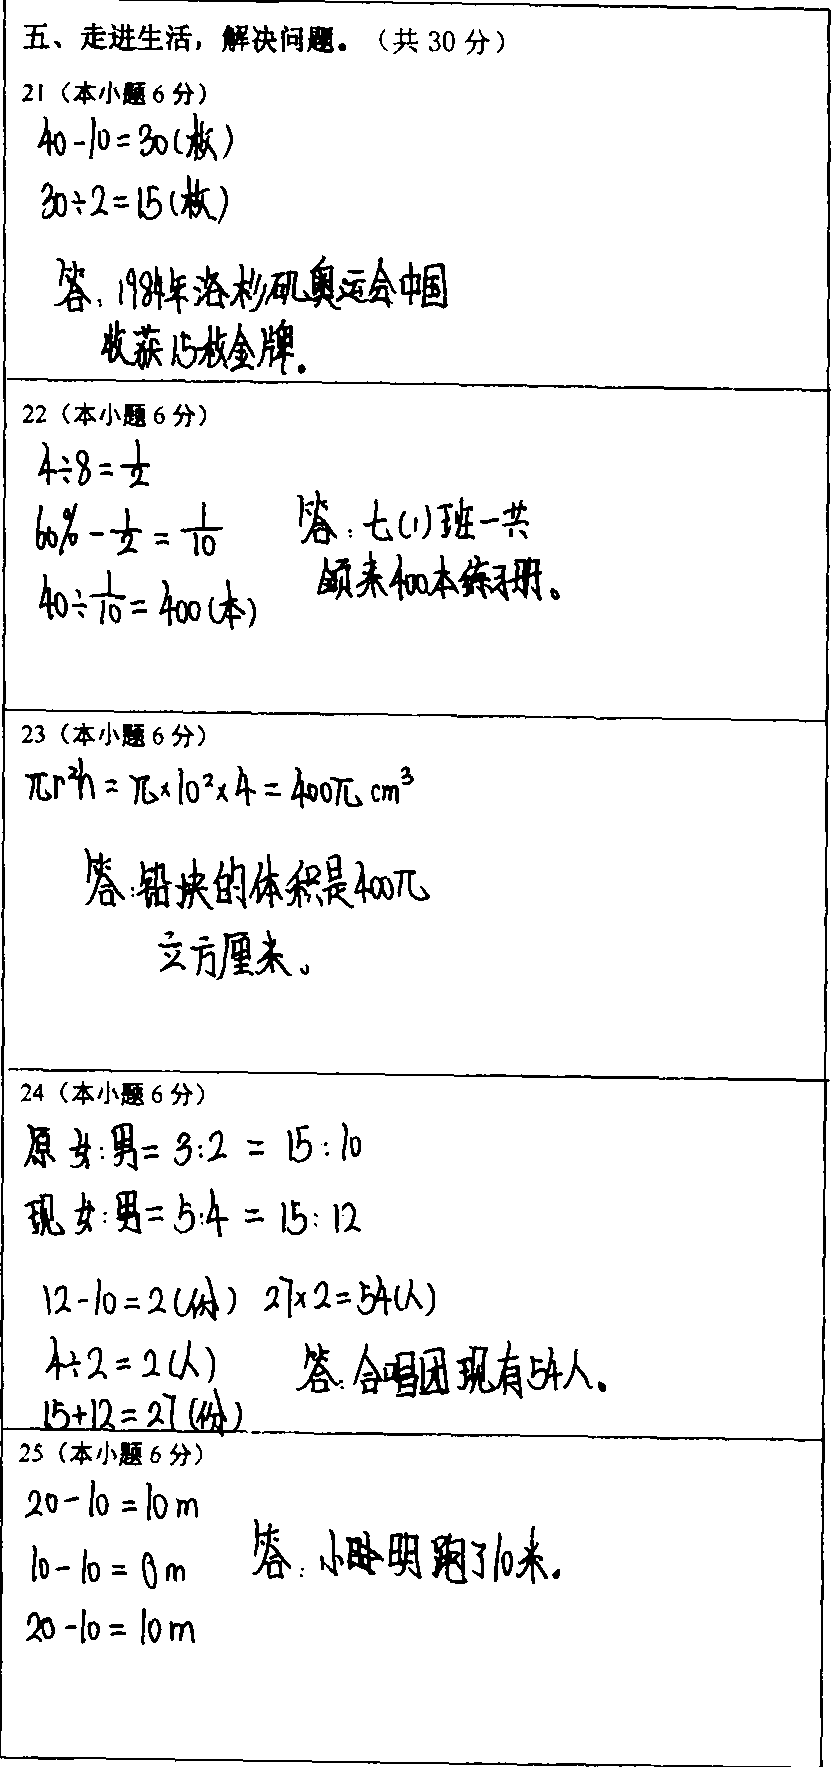 五、走进生活，解决问题。（共 30 分）
21（本小题 6 分）
40-10=30(枚)
30÷2=15(枚)
答：1984年洛杉矶奥运会中国
收获15枚金牌。
22（本小题 6 分）
4÷8=1/2
60%-1/2=1/10
答：七(1)班一共
40÷1/10=400(本)
领来400本练习册。
23（本小题 6 分）
πr²h=π×10²×4=400π cm³
答：铅块的体积是400π
立方厘米。
24（本小题 6 分）
原 女:男=3:2 = 15:10
现 女:男=5:4 = 15:12
12-10=2(份) 27×2=54(人)
4÷2=2(人) 答：合唱团现有54人。
15+12=27(份)
25（本小题 6 分）
20-10=10m
10-10=0m 答：小明跑了10米。
20-10=10m